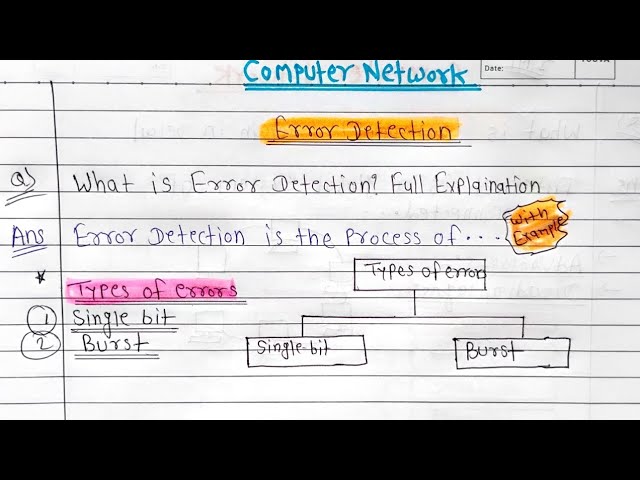 Computer Network
Date:
Error Detection
Q) What is Error Detection? Full Explaination
Ans Error Detection is the process of ...
With
Example
Types of error
* Types of errors
1 Single bit
2 Burst
Single-bit
Burst